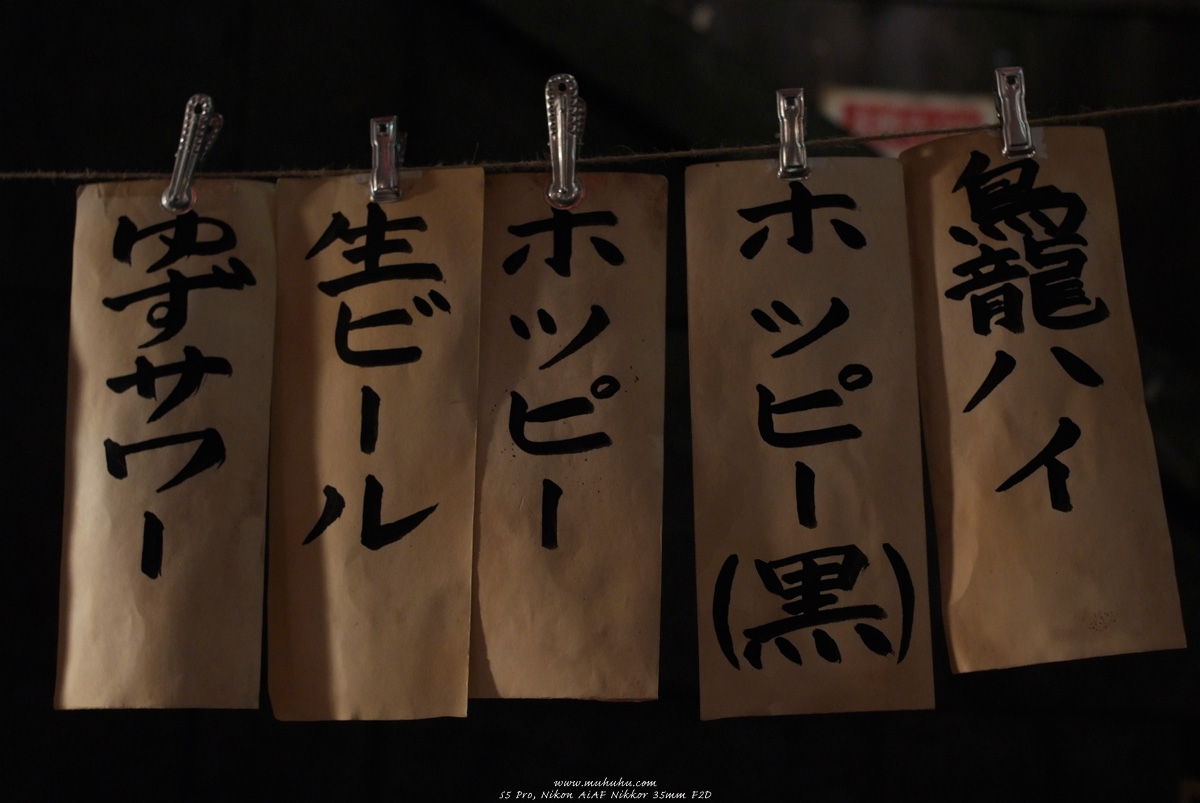 烏龍ハイ
ホッピー(黒)
ホッピー
生ビール
ゆずサワー
www.muhuhu.com
S5 Pro, Nikon AiAF Nikkor 35mm F2D